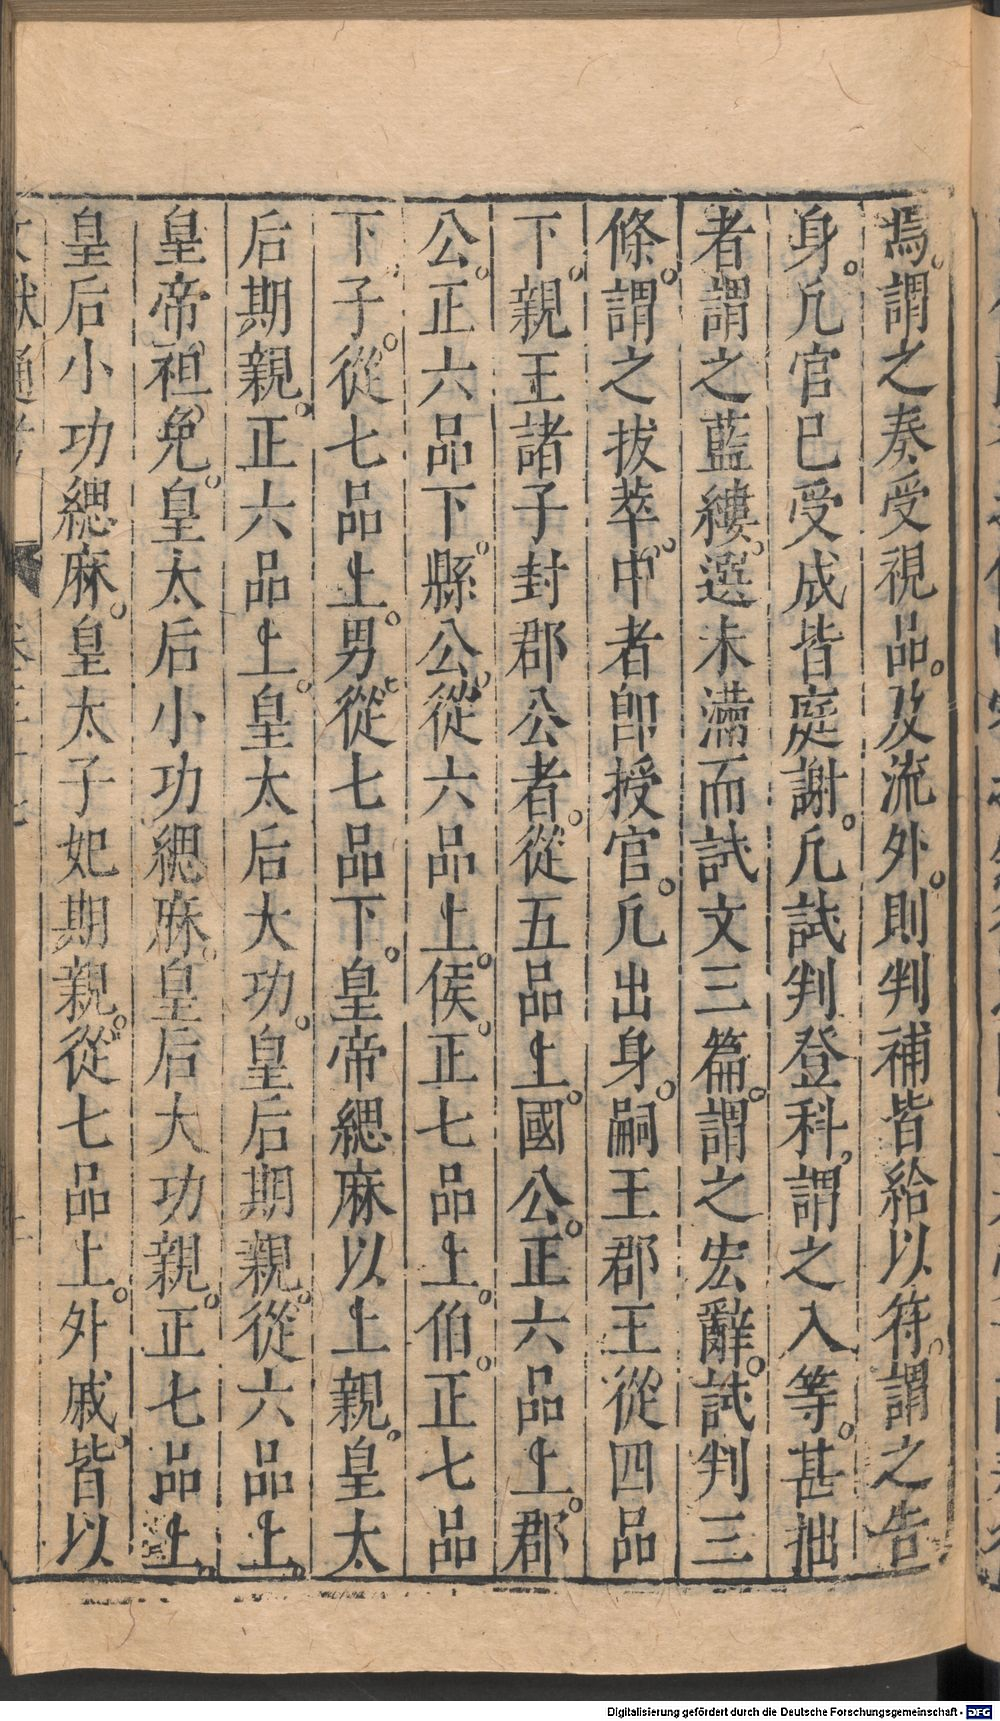 焉。謂之奏受視品。及流外。則判補皆給以符。謂之告
身。凡官已受成皆庭謝。凡試判登科，謂之入等。甚拙
者謂之藍縷。選未滿而試文三篇。謂之宏辭。試判三
條。謂之拔萃。中者即授官。凡出身。嗣王郡王從四品
下。親王諸子封郡公者。從五品上。國公。正六品上。郡
公。正六品下。縣公。從六品上。侯。正七品上。伯。正七品
下。子。從七品上。男。從七品下。皇帝緦麻以上親。皇太
后期親。正六品上。皇太后大功。皇后期親。從六品上。
皇帝袒免。皇太后小功緦麻。皇后大功親。正七品上。
皇后小功緦麻。皇太子妃期親。從七品上。外戚。皆以
文獻通考 卷三十七
Digitalisierung gefördert durch die Deutsche Forschungsgemeinschaft - DFG